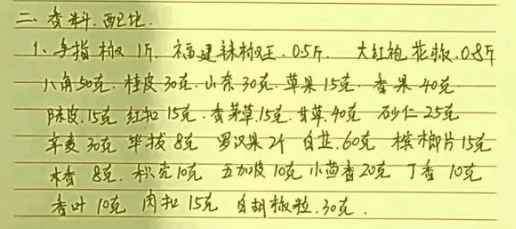 二、香料、配比.
1、手指椒 1斤. 福建辣椒王.0.5斤. 大红袍花椒.0.8斤
八角50克.桂皮30克.山奈30克.草果15克.香果.40克
陈皮.15克 红扣15克.香茅草.15克.甘草.40克 砂仁25克
辛夷30克 毕拔8克 罗汉果2个 白芷.60克 槟榔片15克
木香 8克. 枳壳10克 五加皮10克 小茴香20克 丁香 10克
香叶 10克 肉扣 15克 白胡椒粒.30克.